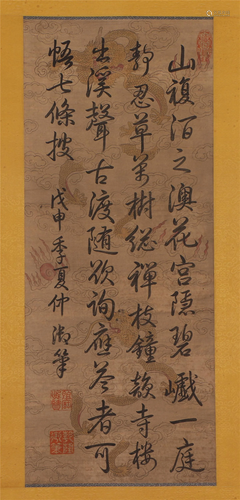 山複洦之澳花宮隱碧巇一庭
靜忍草萬樹総禪枝鐘韻寺樓
出溪聲古渡隨欲詢應答者可
悟七條披 戊申季夏仲御筆